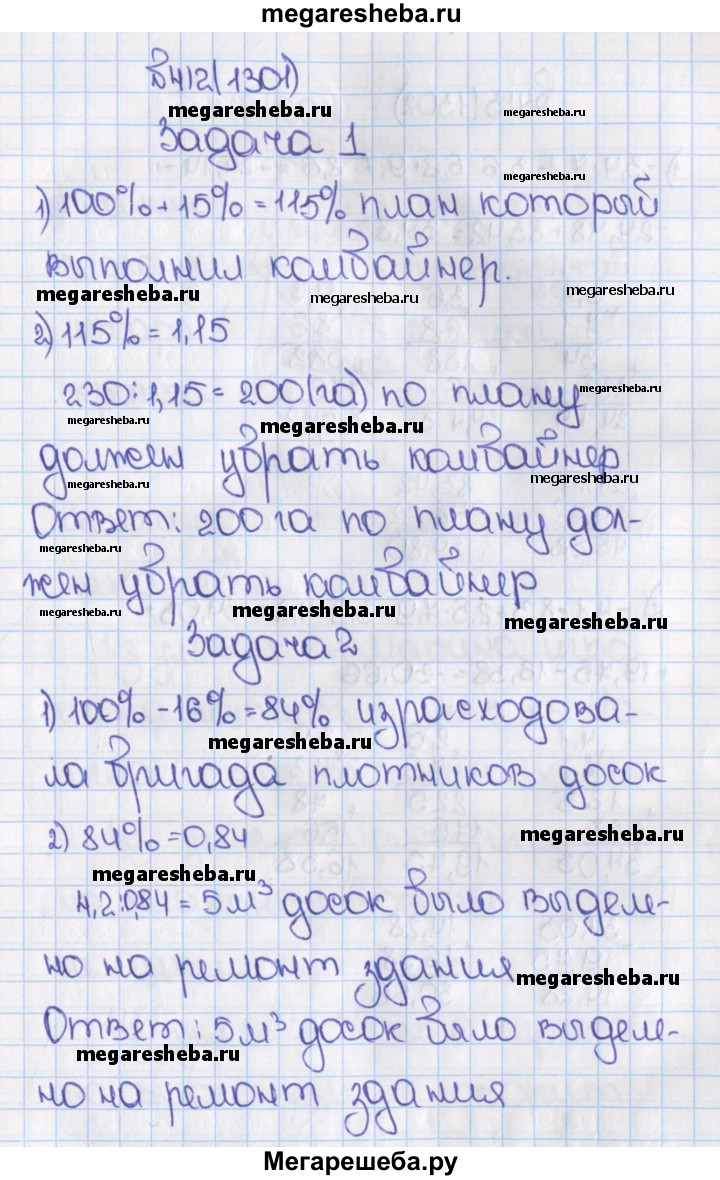 megaresheba.ru
№412(1301)
megaresheba.ru megaresheba.ru
Задача 1
megaresheba.ru
1) 100% + 15% = 115% план который
выполнил комбайнер.
megaresheba.ru megaresheba.ru megaresheba.ru
2) 115% = 1,15
230:1,15 = 200(га) по плану
megaresheba.ru
megaresheba.ru megaresheba.ru
должен убрать комбайнер
megaresheba.ru megaresheba.ru
Ответ: 200 га по плану дол-
megaresheba.ru
жен убрать комбайнер
megaresheba.ru megaresheba.ru megaresheba.ru
Задача 2
1) 100% - 16% = 84% израсходова-
megaresheba.ru
ла бригада плотников досок
2) 84% = 0,84
megaresheba.ru
megaresheba.ru
4,2:0,84 = 5м³ досок было выделе-
но на ремонт здания
megaresheba.ru
Ответ: 5м³ досок было выделе-
megaresheba.ru
но на ремонт здания
Мегарешеба.ру